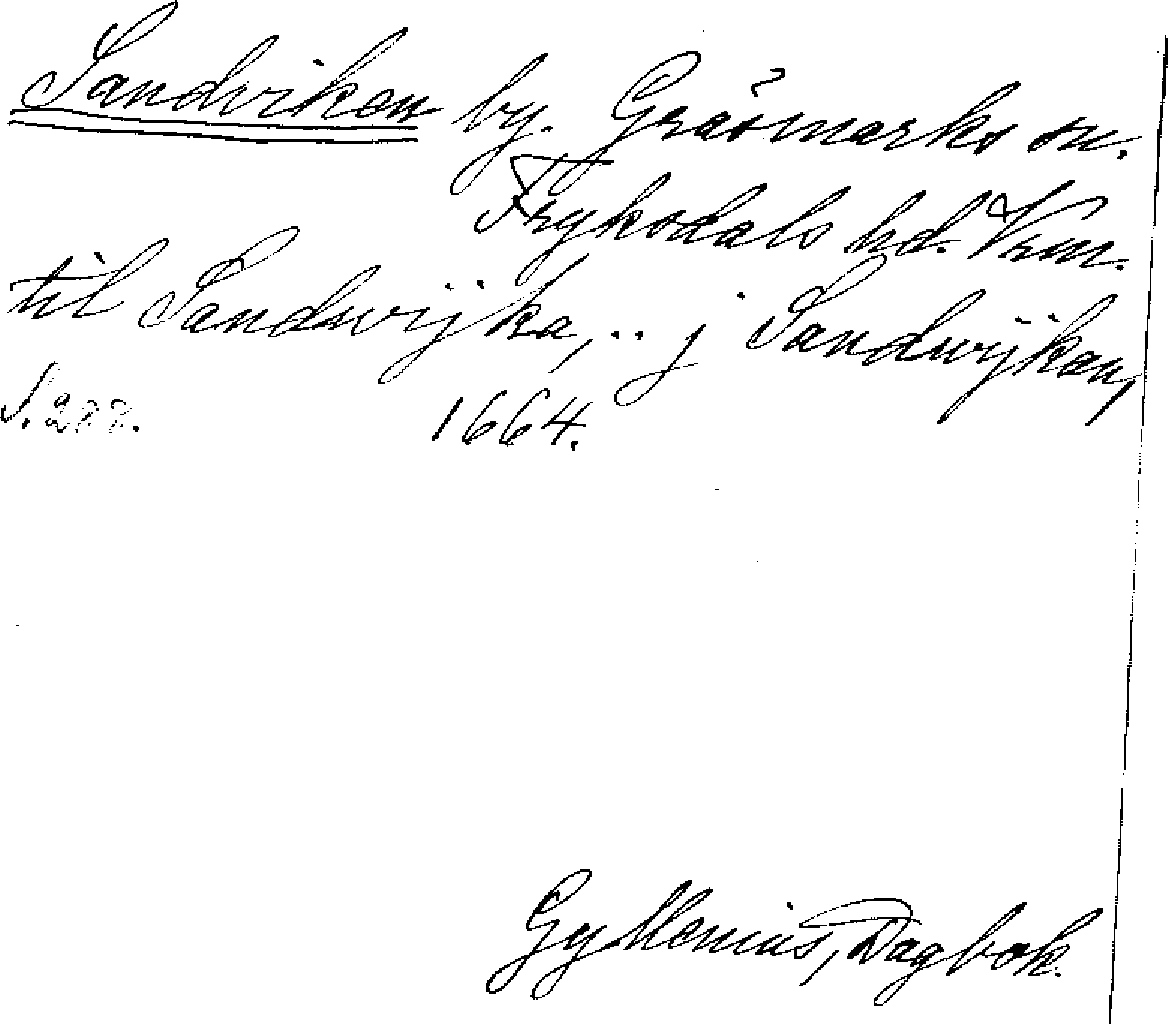 Sandviken by. Gräsmarks sn.
Fryksdals hd. Vrm.
til Sandwijka, .. j Sandwijken,
S. 288. 1664.
Gyllenius, Dagbok.